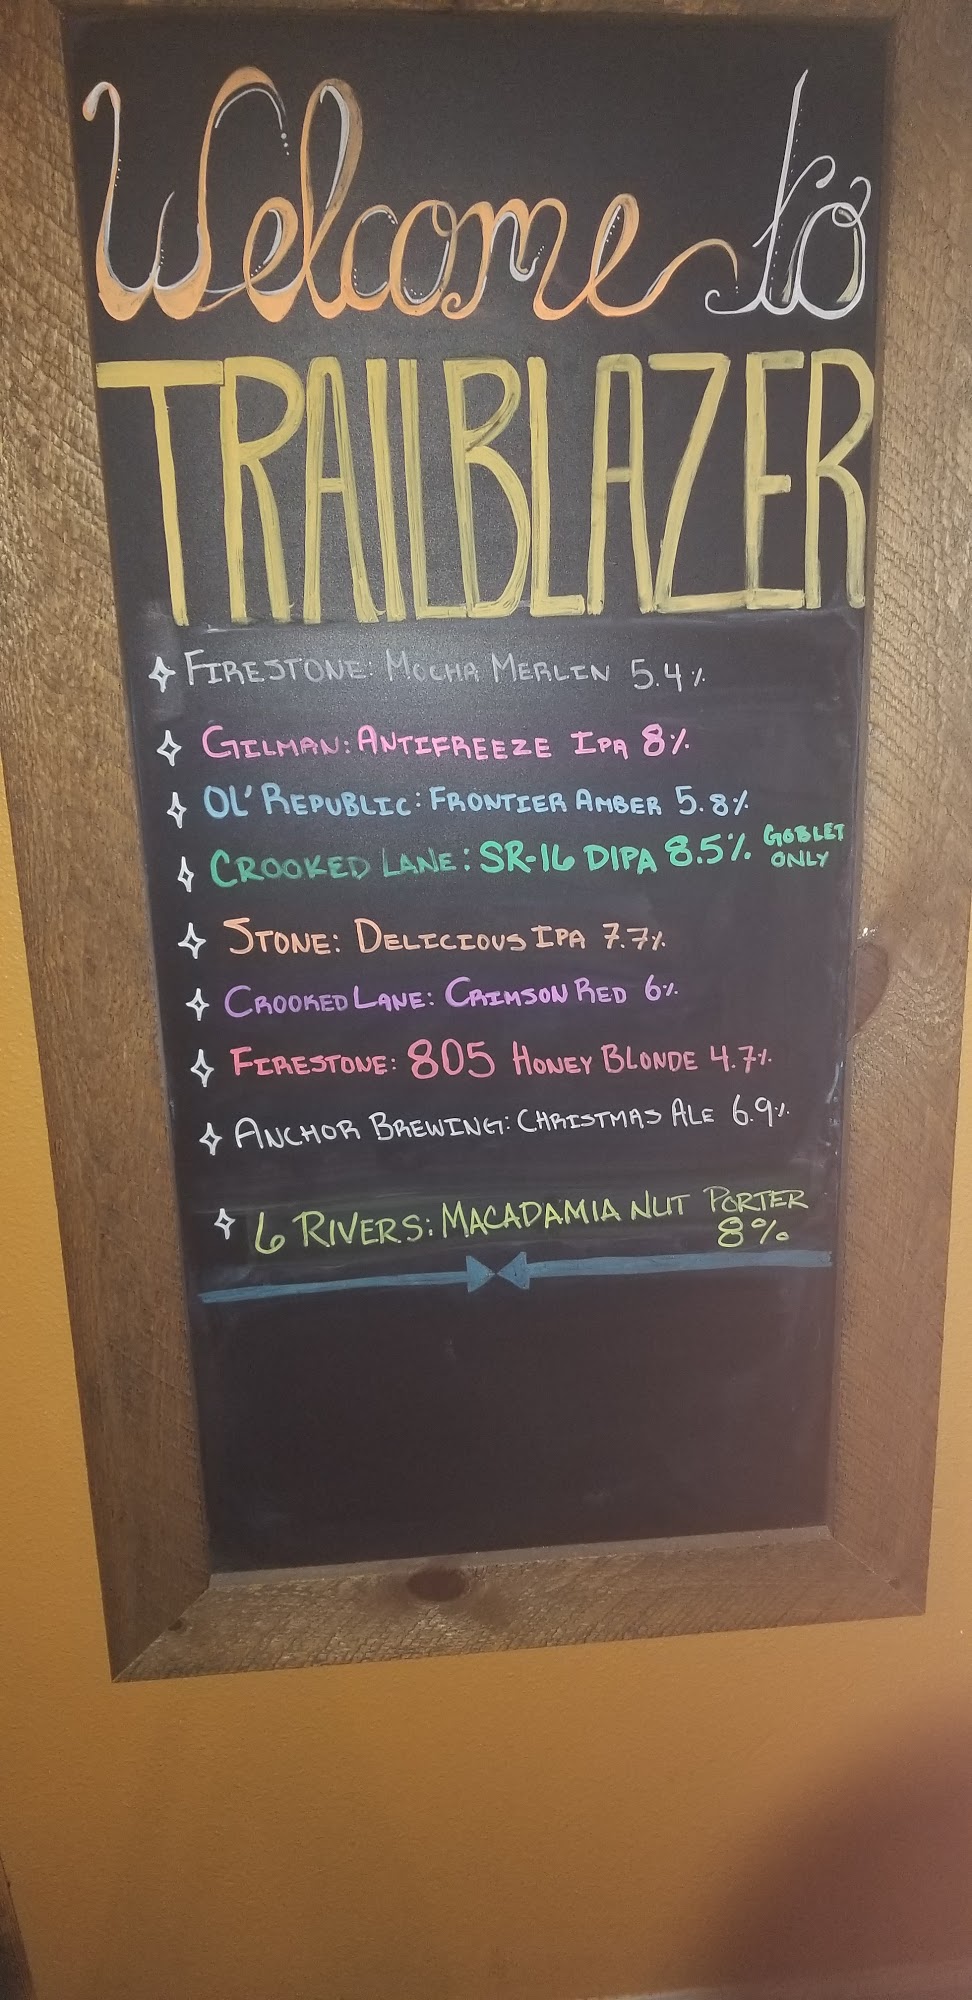 Welcome to
TRAILBLAZER
FIRESTONE: MOCHA MERLIN 5.4%
GILMAN: ANTIFREEZE IPA 8%
OL' REPUBLIC: FRONTIER AMBER 5.8%
CROOKED LANE: SR-16 DIPA 8.5% GOBLET ONLY
STONE: DELICIOUS IPA 7.7%
CROOKED LANE: CRIMSON RED 6%
FIRESTONE: 805 HONEY BLONDE 4.7%
ANCHOR BREWING: CHRISTMAS ALE 6.9%
6 RIVERS: MACADAMIA NUT PORTER
8%